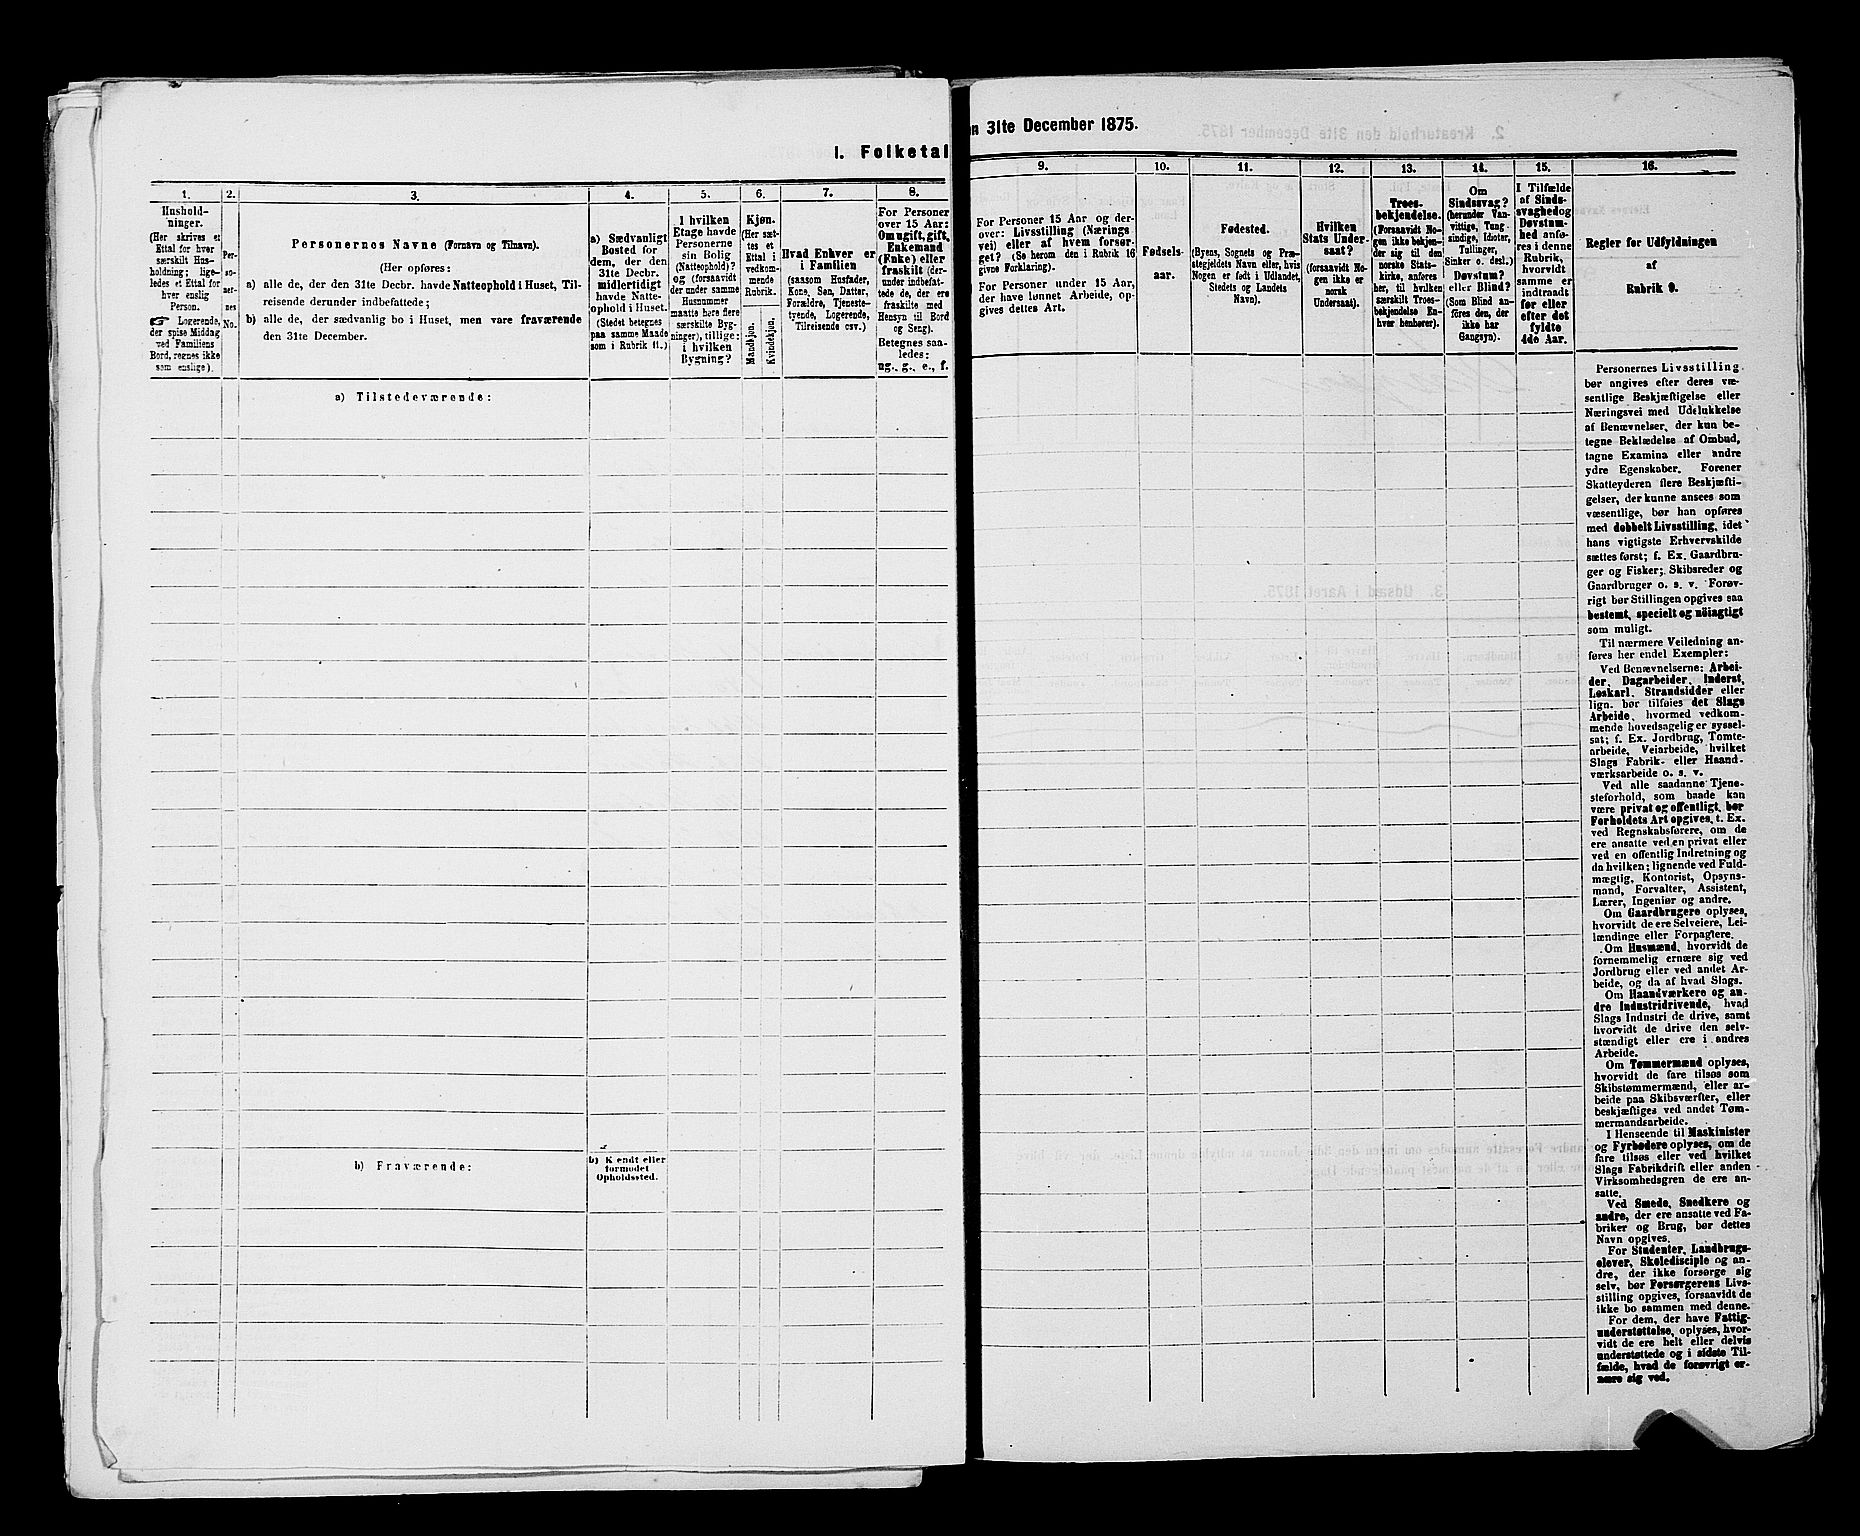 I. Folketal
1.
Hushold-
ninger.
(Her skrives et
Ettal for hver
særskilt Hus-
holdning; lige-
ledes et Ettal for
hver enslig
Person.
☞ Logerende,
der spise Middag
ved Familiens
Bord, regnes ikke
som enslige).
2.
Per-
so-
ner-
nes
No.
3.
Personernes Navne (Fornavn og Tilnavn).
(Her opføres:
a) alle de, der den 31te Decbr. havde Natteophold i Huset, Til-
reisende derunder indbefattede;
b) alle de, der sædvanlig bo i Huset, men vare fraværende
den 31te December.
4.
a) Sædvanligt
Bosted for
dem, der den
31te Decbr.
midlertidigt
havde Natte-
ophold i Huset.
(Stedet betegnes
paa samme Maade
som i Rubrik 11.)
5.
I hvilken
Etage havde
Personerne
sin Bolig
(Natteophold)?
og (forsaavidt
der under samme
Husnummer
maatte høre flere
særskilte Byg-
ninger), tillige:
i hvilken
Bygning?
6.
Kjøn.
(Her sæt-
tes et
Ettal i
vedkom-
mende
Rubrik.
Mandkjøn.
Kvindekjøn.
7.
Hvad Enhver er
i Familien
(saasom Husfader,
Kone, Søn, Datter,
Forældre, Tjeneste-
tyende, Logerende,
Tilreisende osv.)
8.
For Personer
over 15 Aar:
Om ugift, gift,
Enkemand
(Enke) eller
fraskilt (der-
under indbefat-
tede de, der ere
fraskilte med
Hensyn til Bord
og Seng).
Betegnes saa-
ledes:
ug., g., e., f.
a) Tilstedeværende:
b) Fraværende:
b) Kendt eller
formodet
Opholdssted.
en 31te December 1875.
9.
For Personer 15 Aar og der-
over: Livsstilling (Nærings-
vei) eller af hvem forsør-
get? (Se herom den i Rubrik 16
givne Forklaring).
For Personer under 15 Aar,
der have lønnet Arbeide, op-
gives dettes Art.
10.
Fødsels-
aar.
11.
Fødested.
(Byens, Sognets og Præ-
stegjeldets Navn eller, hvis
Nogen er født i Udlandet,
Stedets og Landets
Navn).
12.
Hvilken
Stats Under-
saat?
(forsaavidt No-
gen ikke er
norsk
Undersaat).
13.
Troes-
bekjendelse.
(Forsaavidt No-
gen ikke bekjen-
der sig til den
norske Stats-
kirke, anføres
her, til hvilken
særskilt Troes-
bekjendelse En-
hver henhører).
14.
Om
Sindssvag?
(herunder Van-
vittige, Tung-
sindige, Idioter,
Tullinger,
Sinker o. desl.)
Døvstum?
eller Blind?
(Som Blind an-
føres den, der
ikke har
Gangsyn).
15.
I Tilfælde
af Sinds-
svaghed og
Døvstum-
hed anfø-
res i denne
Rubrik,
hvorvidt
samme er
indtraadt
før eller
efter det
fyldte
4de Aar.
16.
Regler for Udfyldningen
af
Rubrik 9.
Personernes Livsstilling
bør angives efter deres væ-
sentlige Beskjæftigelse eller
Næringsvei med Udelukkelse
af Benævnelser, der kun be-
tegne Beklædelse af Ombud,
tagne Examina eller andre
ydre Egenskaber. Forener
Skatteyderen flere Beskjæfti-
gelser, der kunne ansees som
væsentlige, bør han opføres
med dobbelt Livsstilling, idet
hans vigtigste Erhvervskilde
sættes først; f. Ex. Gaardbru-
ger og Fisker; Skibsreder og
Gaardbruger o. s. v. Forøv-
rigt bør Stillingen opgives saa
bestemt, specielt og nöiagtigt
som muligt.
Til nærmere Veiledning an-
føres her endel Exempler:
Ved Benævnelserne: Arbei-
der, Dagarbeider, Inderst,
Løskarl, Strandsidder eller
lign. bør tilføies det Slags
Arbeide, hvormed vedkom-
mende hovedsagelig er syssel-
sat; f. Ex. Jordbrug, Tomte-
arbeide, Veiarbeide, hvilket
Slags Fabrik- eller Haand-
værksarbeide o. s. v.
Ved alle saadanne Tjene-
steforhold, som baade kan
være privat og offentligt, bør
Forholdets Art opgives, t. Ex.
ved Regnskabsførere, om de
ere ansatte ved en privat eller
ved en offentlig Indretning og
da hvilken; lignende ved Fuld-
mægtig, Kontorist, Opsyns-
mand, Forvalter, Assistent,
Lærer, Ingeniør og andre.
Om Gaardbrugere oplyses,
hvorvidt de ere Selveiere, Lei-
lændinge eller Forpagtere.
Om Husmænd, hvorvidt de
fornemmelig ernære sig ved
Jordbrug eller ved andet Ar-
beide, og da af hvad Slags.
Om Haandværkere og an-
dre Industridrivende, hvad
Slags Industri de drive, samt
hvorvidt de drive den selv-
stændigt eller ere i andres
Arbeide.
Om Tømmermænd oplyses,
hvorvidt de fare tilsøs som
Skibstømmermænd, eller ar-
beide paa Skibsværfter, eller
beskjæftiges ved andet Tøm-
mermandsarbeide.
I Henseende til Maskinister
og Fyrbødere oplyses, om de
fare tilsøs eller ved hvilket
Slags Fabrikdrift eller anden
Virksomhedsgren de ere an-
satte.
Ved Smede, Snedkere og
andre, der ere ansatte ved Fa-
briker og Brug, bør dettes
Navn opgives.
For Studenter, Landbrugs-
elever, Skoledisciple og an-
dre, der ikke forsørge sig
selv, bør Forsørgerens Livs-
stilling opgives, forsaavidt de
ikke bo sammen med denne.
For dem, der have Fattig-
understøttelse, oplyses, hvor-
vidt de ere helt eller delvis
understøttede og i sidste Til-
fælde, hvad de forøvrigt er-
nære sig ved.